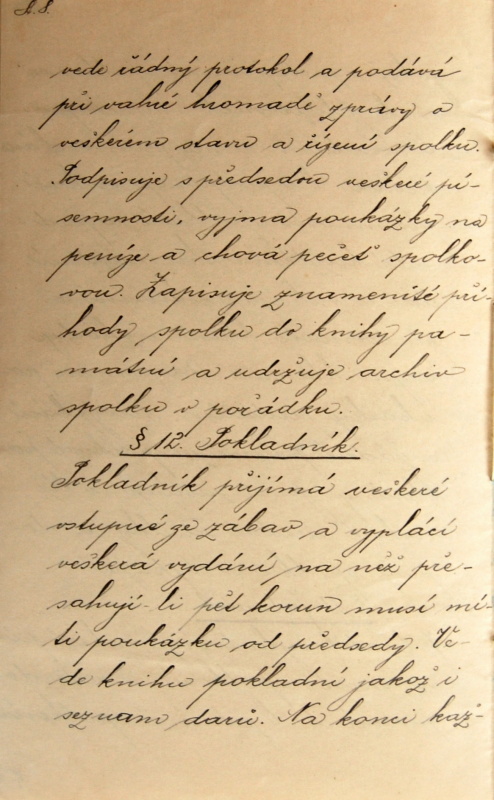 vede řádný protokol a podává
při valné hromadě zprávy o
veškerém stavu a řízení spolku.
Podpisuje s předsedou veškeré pí-
semnosti, vyjma poukázky na
peníze a chová pečeť spolko-
vou. Zapisuje znamenité pří-
hody spolku do knihy pa-
mátní a udržuje archiv
spolku v pořádku.
§ 12. Pokladník.
Pokladník přijímá veškeré
vstupné ze zábav a vyplácí
veškerá vydání na něž pře-
sahují-li pět korun musí mí-
ti poukázku od předsedy. Ve-
de knihu pokladní jakož i
seznam darů. Na konci kaž-